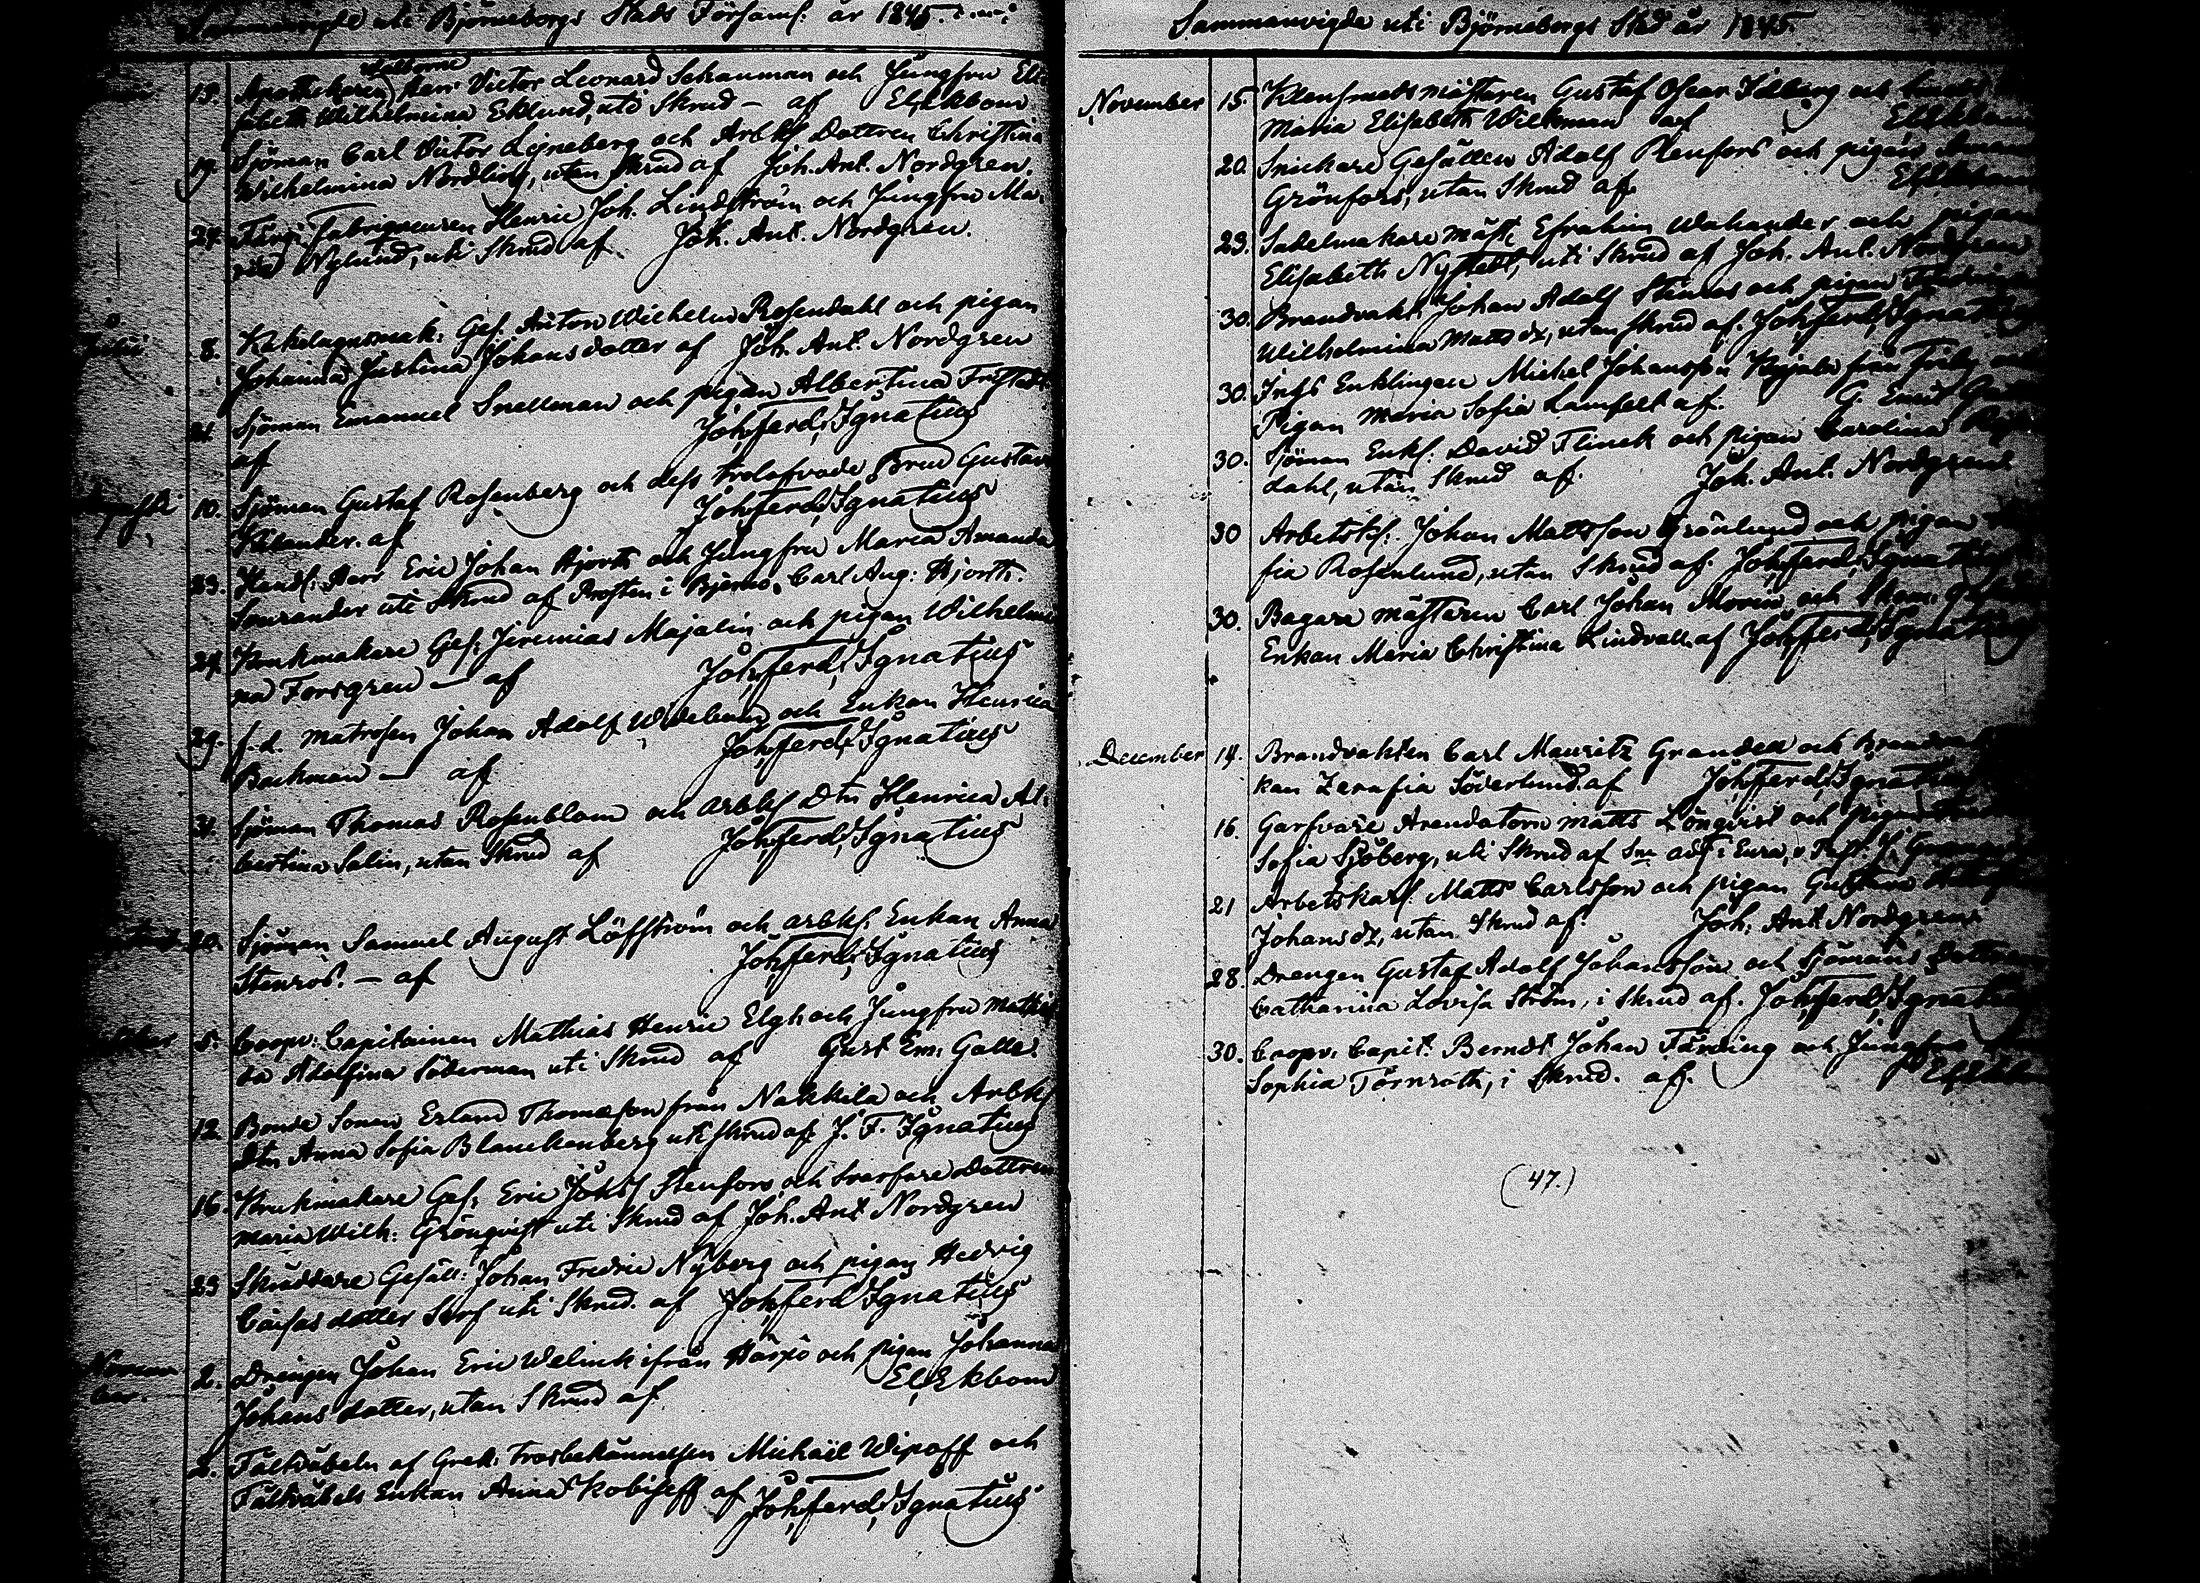 Sammanvigde uti Björneborgs Stads Församl: år 1845.
19. Apothekaren Välborne Herr Victor Leonard Schauman och Jungfru Eli
sabeth Wilhelmina Eklund, uti Skrud – af El. Ekbom
19. Sjöman Carl Victor Ligneberg och Arbkf Dottren Christina
Wilhelmina Nordling, utan Skrud af Joh. Ant. Nordgren.
24. Färg: Fabriqueuren Henric Joh. Lindström och Jungfru Ma,
ria Nylund, uti Skrud af Joh. Ant. Nordgren.
Julii 8. Kakelugnsmak: Ges. Anton Wilhelm Rosendahl och pigan
Johanna Justina Johansdotter af Joh. Ant. Nordgren
21. Sjöman Emanuel Snellman och pigan Albertina Fristedt
af Joh. ferd. Ignatius
10. Sjöman Gustaf Rosenberg och dess trolofvade Brud Gustava
Kilander. af Joh. ferd. Ignatius
23. Handl: Herr Eric Johan Hjorth och Jungfru Maria Amanda
Sourander uti Skrud af Prosten i Bjerno, Carl Aug: Hjorth.
24. Krukmakare Ges: Jeremias Majalin och pigan Wilhelmi
na Forsgren – af Joh. ferd. Ignatius
29. f.d. Matrosen Johan Adolf Widelund och Enkan Henrica
Backman – af Joh. ferd. Ignatius
31. Sjöman Thomas Rosenblom och arbkf Dtn Henrica Al:
bertina Salin, utan Skrud af Joh. ferd. Ignatius
20. Sjöman Samuel August Löfström och arbkf: Enkan Anna
Stenros. – af Joh. ferd. Ignatius
5. Coopv: Capitainen Mathias Henric Elgh och Jungfru Mathil
da Adolfina Söderman uti Skrud af Gust Em: Gallen.
12. Bonde Sonen Erland Thomasson från Nakkila och Arbkf
Dtn Anna Sofia Blanckenberg uti Skrud af J. F. Ignatius
16. Krukmakare Ges: Eric Johsf Stenfors och Svarfare dottren
Maria Wilh: Grönqvist uti Skrud af Joh. Ant Nordgren
23 Skräddare Gesäll: Johan Fredric Nyberg och pigan Hedvig
Caisas dotter uti Skrud. af Joh. ferd Ignatius
Novem
ber. 2. Drengen Johan Eric Welink ifrån och pigan Johanna
Johans dotter, utan Skrud af El. Ekbom
2. Fältväbeln af Grek: trosbekännelsen Michaël Wipoff och
Fältväbels Enkan Anna Kobiseff af Joh. ferd. Ignatius
Sammanvigde uti Björneborgs Stad år 1845.
November 15. Klensmedsmästaren Gustaf Oscar Idbing och
Maria Elisabeth Wilkman af El. Ekbom
20. Snickare Gesällen Adolf Renfors och pigan Aman
Grönfors, utan Skrud af. El. Ekbom
23. Sadelmakare mäst: Efraim Wahander och pigan
Elisabeth Nystedt, uti Skrud af Joh. Ant. Nordgren
30. Brandvakt Johan Adolf Stenros och pigan Fredrica
Wilhelmina Matts dr, utan skrud af. Joh. ferd. Ignatius
30. Inhs Enklingen Michel Johansson från och
Pigan Maria Sofia Lamfelt af. G. Emil
30. Sjöman Enkl: David Flinck och pigan Carolina
dahl, utan Skrud af. Joh. Ant. Nordgren
30 Arbetskf: Johan Mattsson Grönlund och pigan
fia Rosenlund, utan Skrud af. Joh. ferd. Ignatius
30. Bagare mästaren Carl Johan Moren och
Enkan Maria Christina Lindvall. af Joh. ferd. Ignatius
December 14. Brandvakten Carl Mauritz Grandell och Brandvakts
kan Zerafia Söderlund. af Joh. ferd. Ignatius
16. Garfvare Arendatorn Matts Lönqvist och pigan
Sofia Sjöberg, uti Skrud af Sn adj: i Eura,
21 Arbetskarl: Matts Carlsson och pigan Gustava
Johansdr, utan Skrud af. Joh: Ant Nordgren
28. Drengen Gustaf Adolf Johansson och Sjömans Dottren
Catharina Lovisa Ström, i Skrud af. Joh. ferd. Ignatius
30. Coopv: Capit: Berndt Johan Färling och Jungfru
Sophia Törnroth, i Skrud. af. El. Ekbom
(47.)